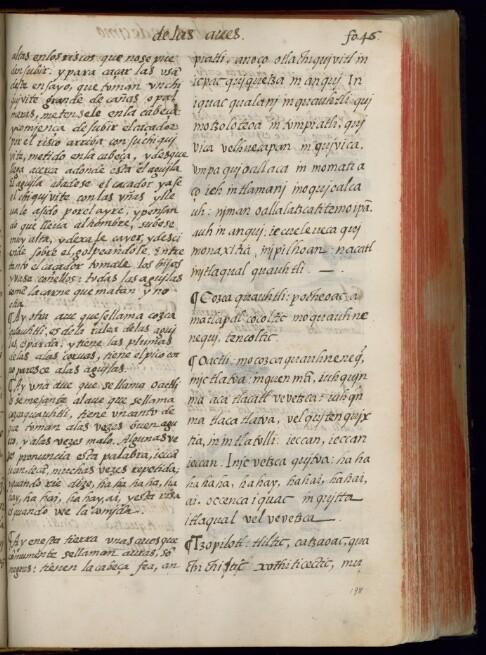 de las aues.
fo. 46
altas en los riscos que no se pue
den subir. y para caçar las usã
deste ensayo, que toman vn chi
quivite grande de cañas o pal
mas, metensele en la cabeça
y comiença de subir el caçador
por el risco arriba con su chiqui
vite, metido en la cabeça, y desque
llega acerca adonde esta el aguila
el aguila abatese al caçador y ase
el chiquivite con las vñas y lle
uale asido por el ayre, y pensan
do que lleua al hombre, subese
muy alta, y dexase caer, y desci
ende sobre el golpeandole. Entre
tanto el caçador tomale los hijos
y vase con ellos: todas las aguilas
comen la carne que matan y no
otra
¶ Ay otra aue que se llama cozca
quauhtli, es de la ralea de las agui
las, es parda: y tiene las plumas
de las alas coruas, tiene el pico cor
uo parece a las aguilas.
¶ Ay vna aue que se llama oactli
es semejante al aue que se llama
cozcaquauhtli, tiene vn canto de
que toman a las vezes buen aguero,
y a las vezes malo. Algunas ve
zes pronuncia esta palabra, ieccã
iancã, muchas vezes repetida;
quando rie dize, ha ha ha ha, ha
hay, ha hai, ha hay, ai, y esta risa
quando vee la comida.
¶ Ay en esta tierra vnas aues que
comunmente se llaman auras, sõ
negras: tienen la cabeça fea, an
piatli, anoço otlachiquivitl in
icpac quiquetza in anqui. In
iquac qualani in quauhtli: qui
motzoloçoa in tompiatli, qui
vica vel iueicapan in quivica,
umpa quioallaça in momati a
ço ieh in tlamani moquioalca
uh: niman oallalatzcatitemo ipã.
auh in anqui, ie cuele ueca qui
monaxitia, inipilhoan: nacatl
initlaqual quauhtli. —.
¶ Cozca quauhtli: pozteoac a
matlapal coloctic mo quauhne
nequi, tencoltic.
¶ Oactli: mocozcaquauhneneq,
nictlatva: in quenmã, iuhquin
ma aca tlacatl vevetzca: iuhqn
ma tlaca tlatva, vel quitenquix
tia, in in tlatolli: ieccan, ieccan
ieccan. Inic vetzca quitva: ha ha
ha ha ha, ha hay, ha hai, ha hai,
ai. occenca iquac in quitta
itlaqual vel vevetzca —
¶ Tzopilotl: tliltic, catzaoac, qua
chichiltic xothiticectic, mic
198